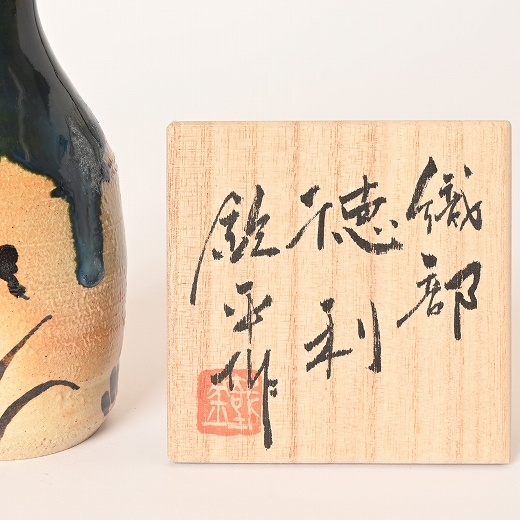 織部
徳利
鉄平作